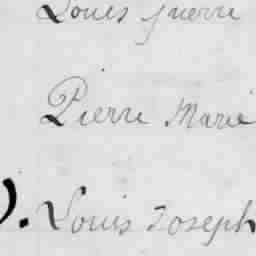 Louis Pierre
Pierre Marie
Louis Joseph